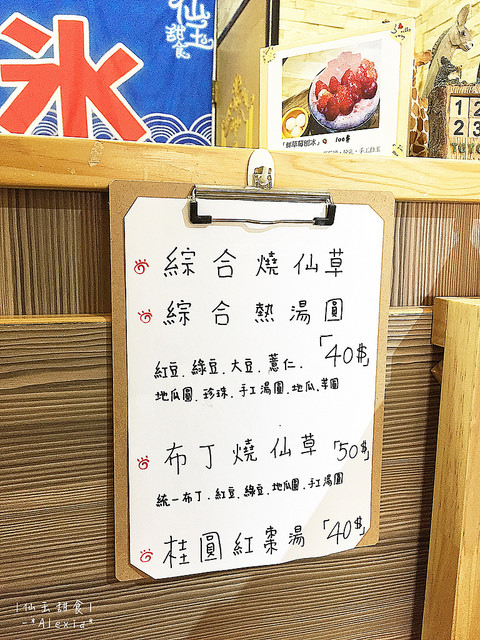 仙玉
甜食
冰
「鮮草莓刨冰」 100$
1 1
2 2
2 3
綜合燒仙草
綜合熱湯圓
紅豆.綠豆.大豆.薏仁.「40$」
地瓜圓.珍珠.手工湯圓.地瓜.芋圓
布丁燒仙草「50$」
統一布丁.紅豆.綠豆.地瓜圓.手工湯圓
桂圓紅棗湯「40$」
|仙玉甜食|
~*Alexia*